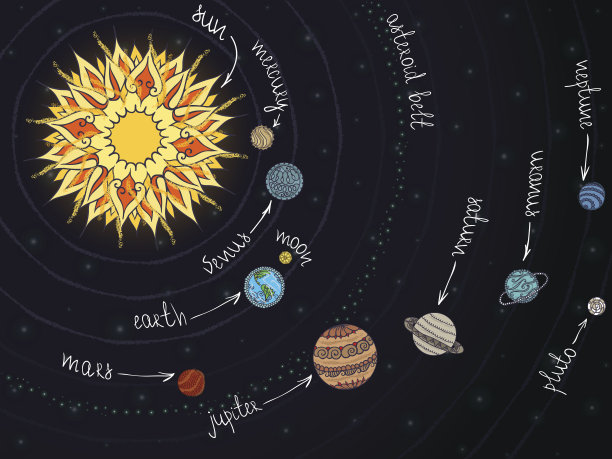 sun
mercury
asteroid belt
neptune
uranus
saturn
venus
moon
earth
mars
jupiter
pluto